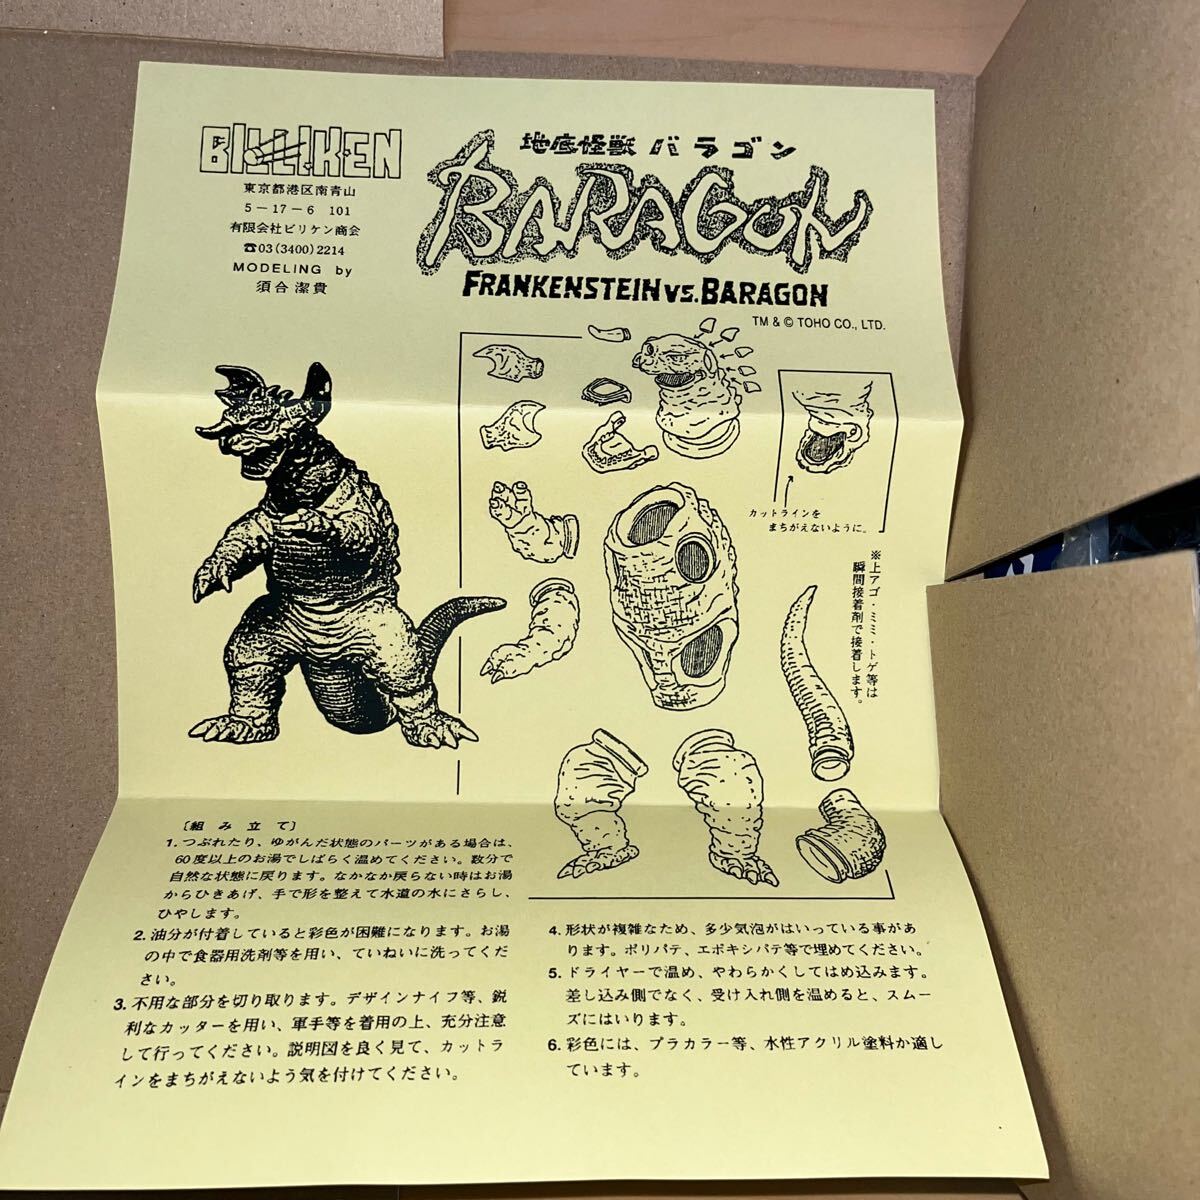 BILLIKEN
東京都港区南青山
5−17−6 101
有限会社ビリケン商会
☎03(3400)2214
MODELING by
須合 潔貴
地底怪獣 バラゴン
BARAGON
FRANKENSTEIN VS. BARAGON
TM & © TOHO CO., LTD.
カットラインを
まちがえないように。
※上アゴ・ミミ・トゲ等は
瞬間接着剤で接着します。
〔組み立て〕
1. つぶれたり、ゆがんだ状態のパーツがある場合は、
60度以上のお湯でしばらく温めてください。数分で
自然な状態に戻ります。なかなか戻らない時はお湯
からひきあげ、手で形を整えて水道の水にさらし、
ひやします。
2. 油分が付着していると彩色が困難になります。お湯
の中で食器用洗剤等を用い、ていねいに洗ってくだ
さい。
3. 不用な部分を切り取ります。デザインナイフ等、鋭
利なカッターを用い、軍手等を着用の上、充分注意
して行ってください。説明図を良く見て、カットラ
インをまちがえないよう気を付けてください。
4. 形状が複雑なため、多少気泡がはいっている事があ
ります。ポリパテ、エポキシパテ等で埋めてください。
5. ドライヤーで温め、やわらかくしてはめ込みます。
差し込み側でなく、受け入れ側を温めると、スムー
ズにはいります。
6. 彩色には、プラカラー等、水性アクリル塗料か適し
ています。